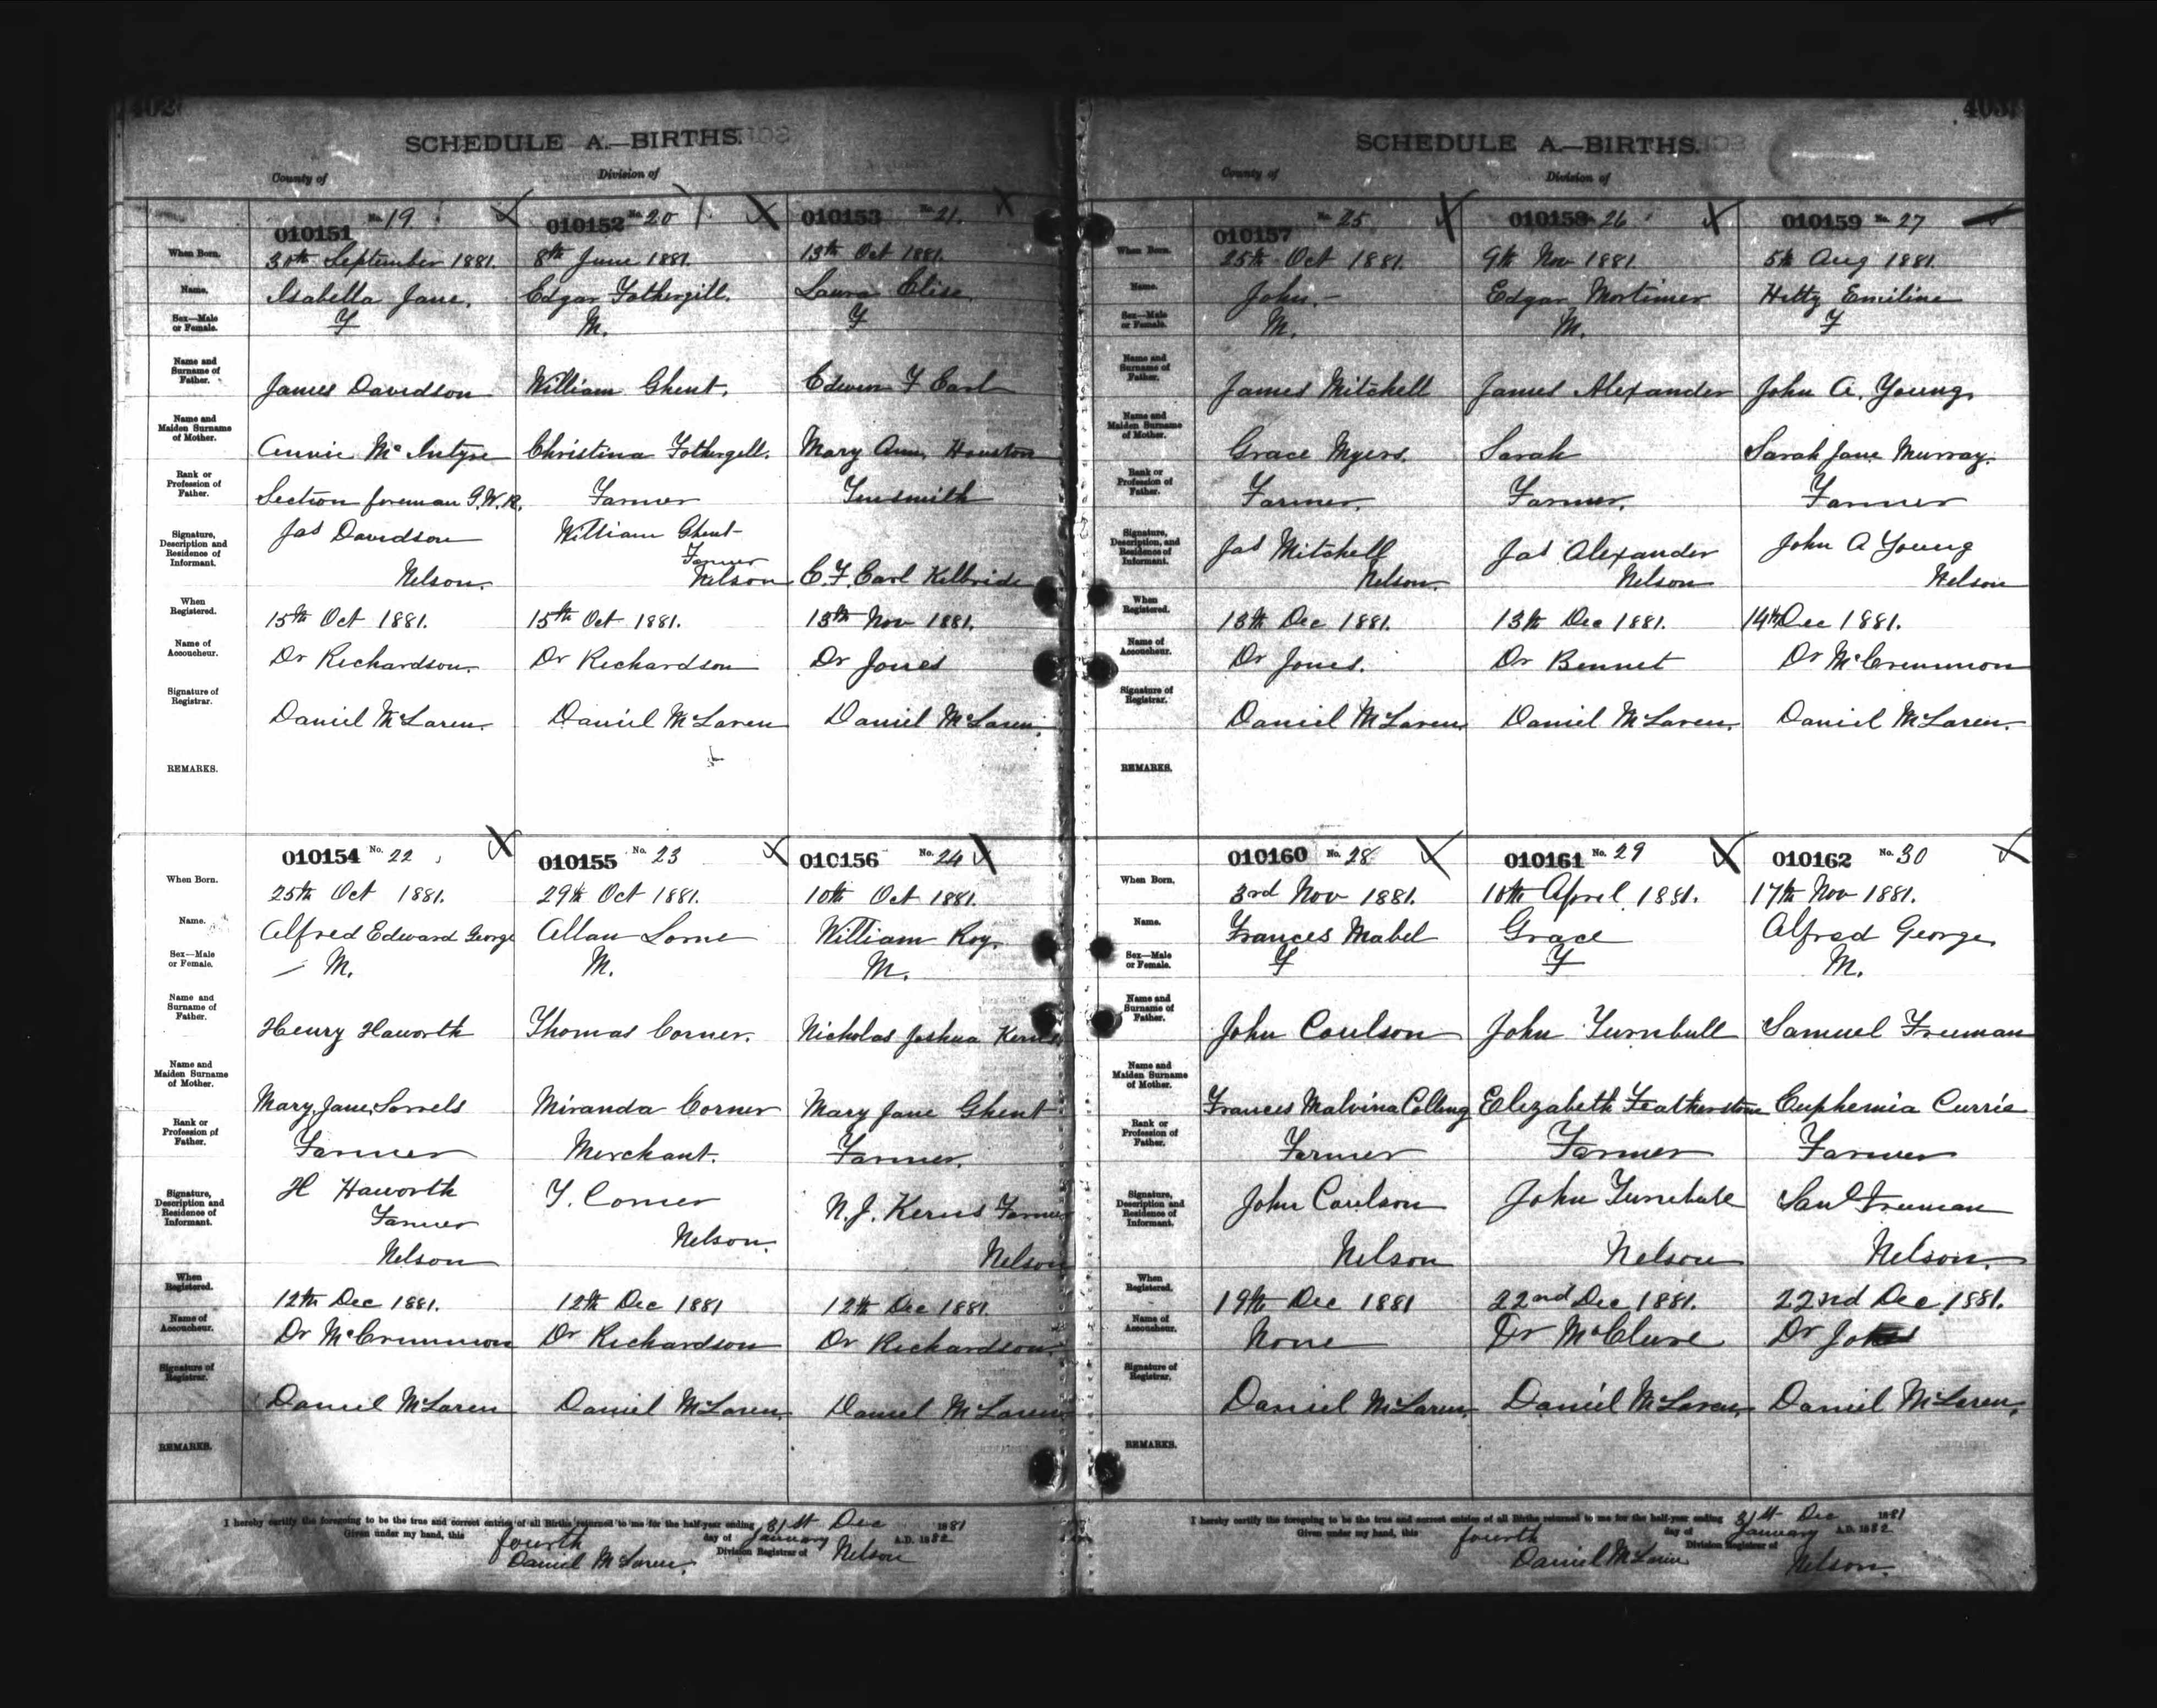 402
SCHEDULE A.—BIRTHS.
County of Division of
010151 No. 19 010152 No. 20 010153 No. 21.
When Born. 30th September 1881. 8th June 1881. 13th Oct 1881.
Name. Isabella Jane. Edgar Fothergill. Laura Elise
Sex—Male or Female. F M. F
Name and Surname of Father. James Davidson William Ghent. Edwin F Earl
Name and Maiden Surname of Mother. Annie McIntyre Christina Fothergill. Mary Ann Houston
Rank or Profession of Father. Section foreman G.W.R. Farmer Tinsmith
Signature, Description and Residence of Informant. Jas Davidson William Ghent
Farmer
Nelson. Nelson E.F. Earl Kilbride
When Registered. 15th Oct 1881. 15th Oct 1881. 13th Nov 1881.
Name of Accoucheur. Dr Richardson. Dr Richardson Dr Jones
Signature of Registrar. Daniel McLaren. Daniel McLaren Daniel McLaren.
REMARKS.
010154 No. 22 010155 No. 23 010156 No. 24
When Born. 25th Oct 1881. 29th Oct 1881. 10th Oct 1881.
Name. Alfred Edward George Allan Lorne William Roy.
Sex—Male or Female. M. M. M.
Name and Surname of Father. Henry Haworth Thomas Corner. Nicholas Joshua Kerns
Name and Maiden Surname of Mother. Mary Jane Sorrels Miranda Corner Mary Jane Ghent
Rank or Profession of Father. Farmer Merchant. Farmer.
Signature, Description and Residence of Informant. H Haworth T. Corner N.J. Kerns Farmer
Farmer
Nelson Nelson. Nelson
When Registered. 12th Dec 1881. 12th Dec 1881 12th Dec 1881
Name of Accoucheur. Dr McCrimmon Dr Richardson Dr Richardson.
Signature of Registrar. Daniel McLaren Daniel McLaren. Daniel McLaren
REMARKS.
I hereby certify the foregoing to be the true and correct entries of all Births returned to me for the half-year ending 31st Dec 1881
Given under my hand, this fourth day of January A.D. 1882
Daniel McLaren. Division Registrar of Nelson
403
SCHEDULE A.—BIRTHS.
County of Division of
010157 No. 25 010158 No. 26 010159 No. 27
When Born. 25th Oct 1881. 9th Nov 1881. 5th Aug 1881.
Name. John.- Edgar Mortimer Hetty Emiline
Sex—Male or Female. M. M. F
Name and Surname of Father. James Mitchell James Alexander John A. Young.
Name and Maiden Surname of Mother. Grace Myers. Sarah Sarah Jane Murray.
Rank or Profession of Father. Farmer. Farmer. Farmer
Signature, Description, and Residence of Informant. Jas Mitchell Jas Alexander John A Young
Nelson. Nelson Nelson
When Registered. 13th Dec 1881. 13th Dec 1881. 14th Dec 1881.
Name of Accoucheur. Dr Jones. Dr Bennet Dr McCrimmon
Signature of Registrar. Daniel McLaren. Daniel McLaren. Daniel McLaren.
REMARKS.
010160 No. 28 010161 No. 29 010162 No. 30
When Born. 3rd Nov 1881. 10th April 1881. 17th Nov 1881.
Name. Frances Mabel Grace Alfred George.
Sex—Male or Female. F F M.
Name and Surname of Father. John Coulson John Turnbull Samuel Truman
Name and Maiden Surname of Mother. Frances Malvina Colling Elizabeth Featherstone Euphemia Currie
Rank or Profession of Father. Farmer Farmer Farmer
Signature, Description and Residence of Informant. John Coulson John Turnbull Saml Truman
Nelson Nelson Nelson.
When Registered. 19th Dec 1881 22nd Dec 1881. 22nd Dec 1881.
Name of Accoucheur. None Dr McClure Dr
Signature of Registrar. Daniel McLaren. Daniel McLaren. Daniel McLaren.
REMARKS.
I hereby certify the foregoing to be the true and correct entries of all Births returned to me for the half-year ending 31st Dec 1881
Given under my hand, this fourth day of January A.D. 1882
Daniel McLaren Division Registrar of Nelson.